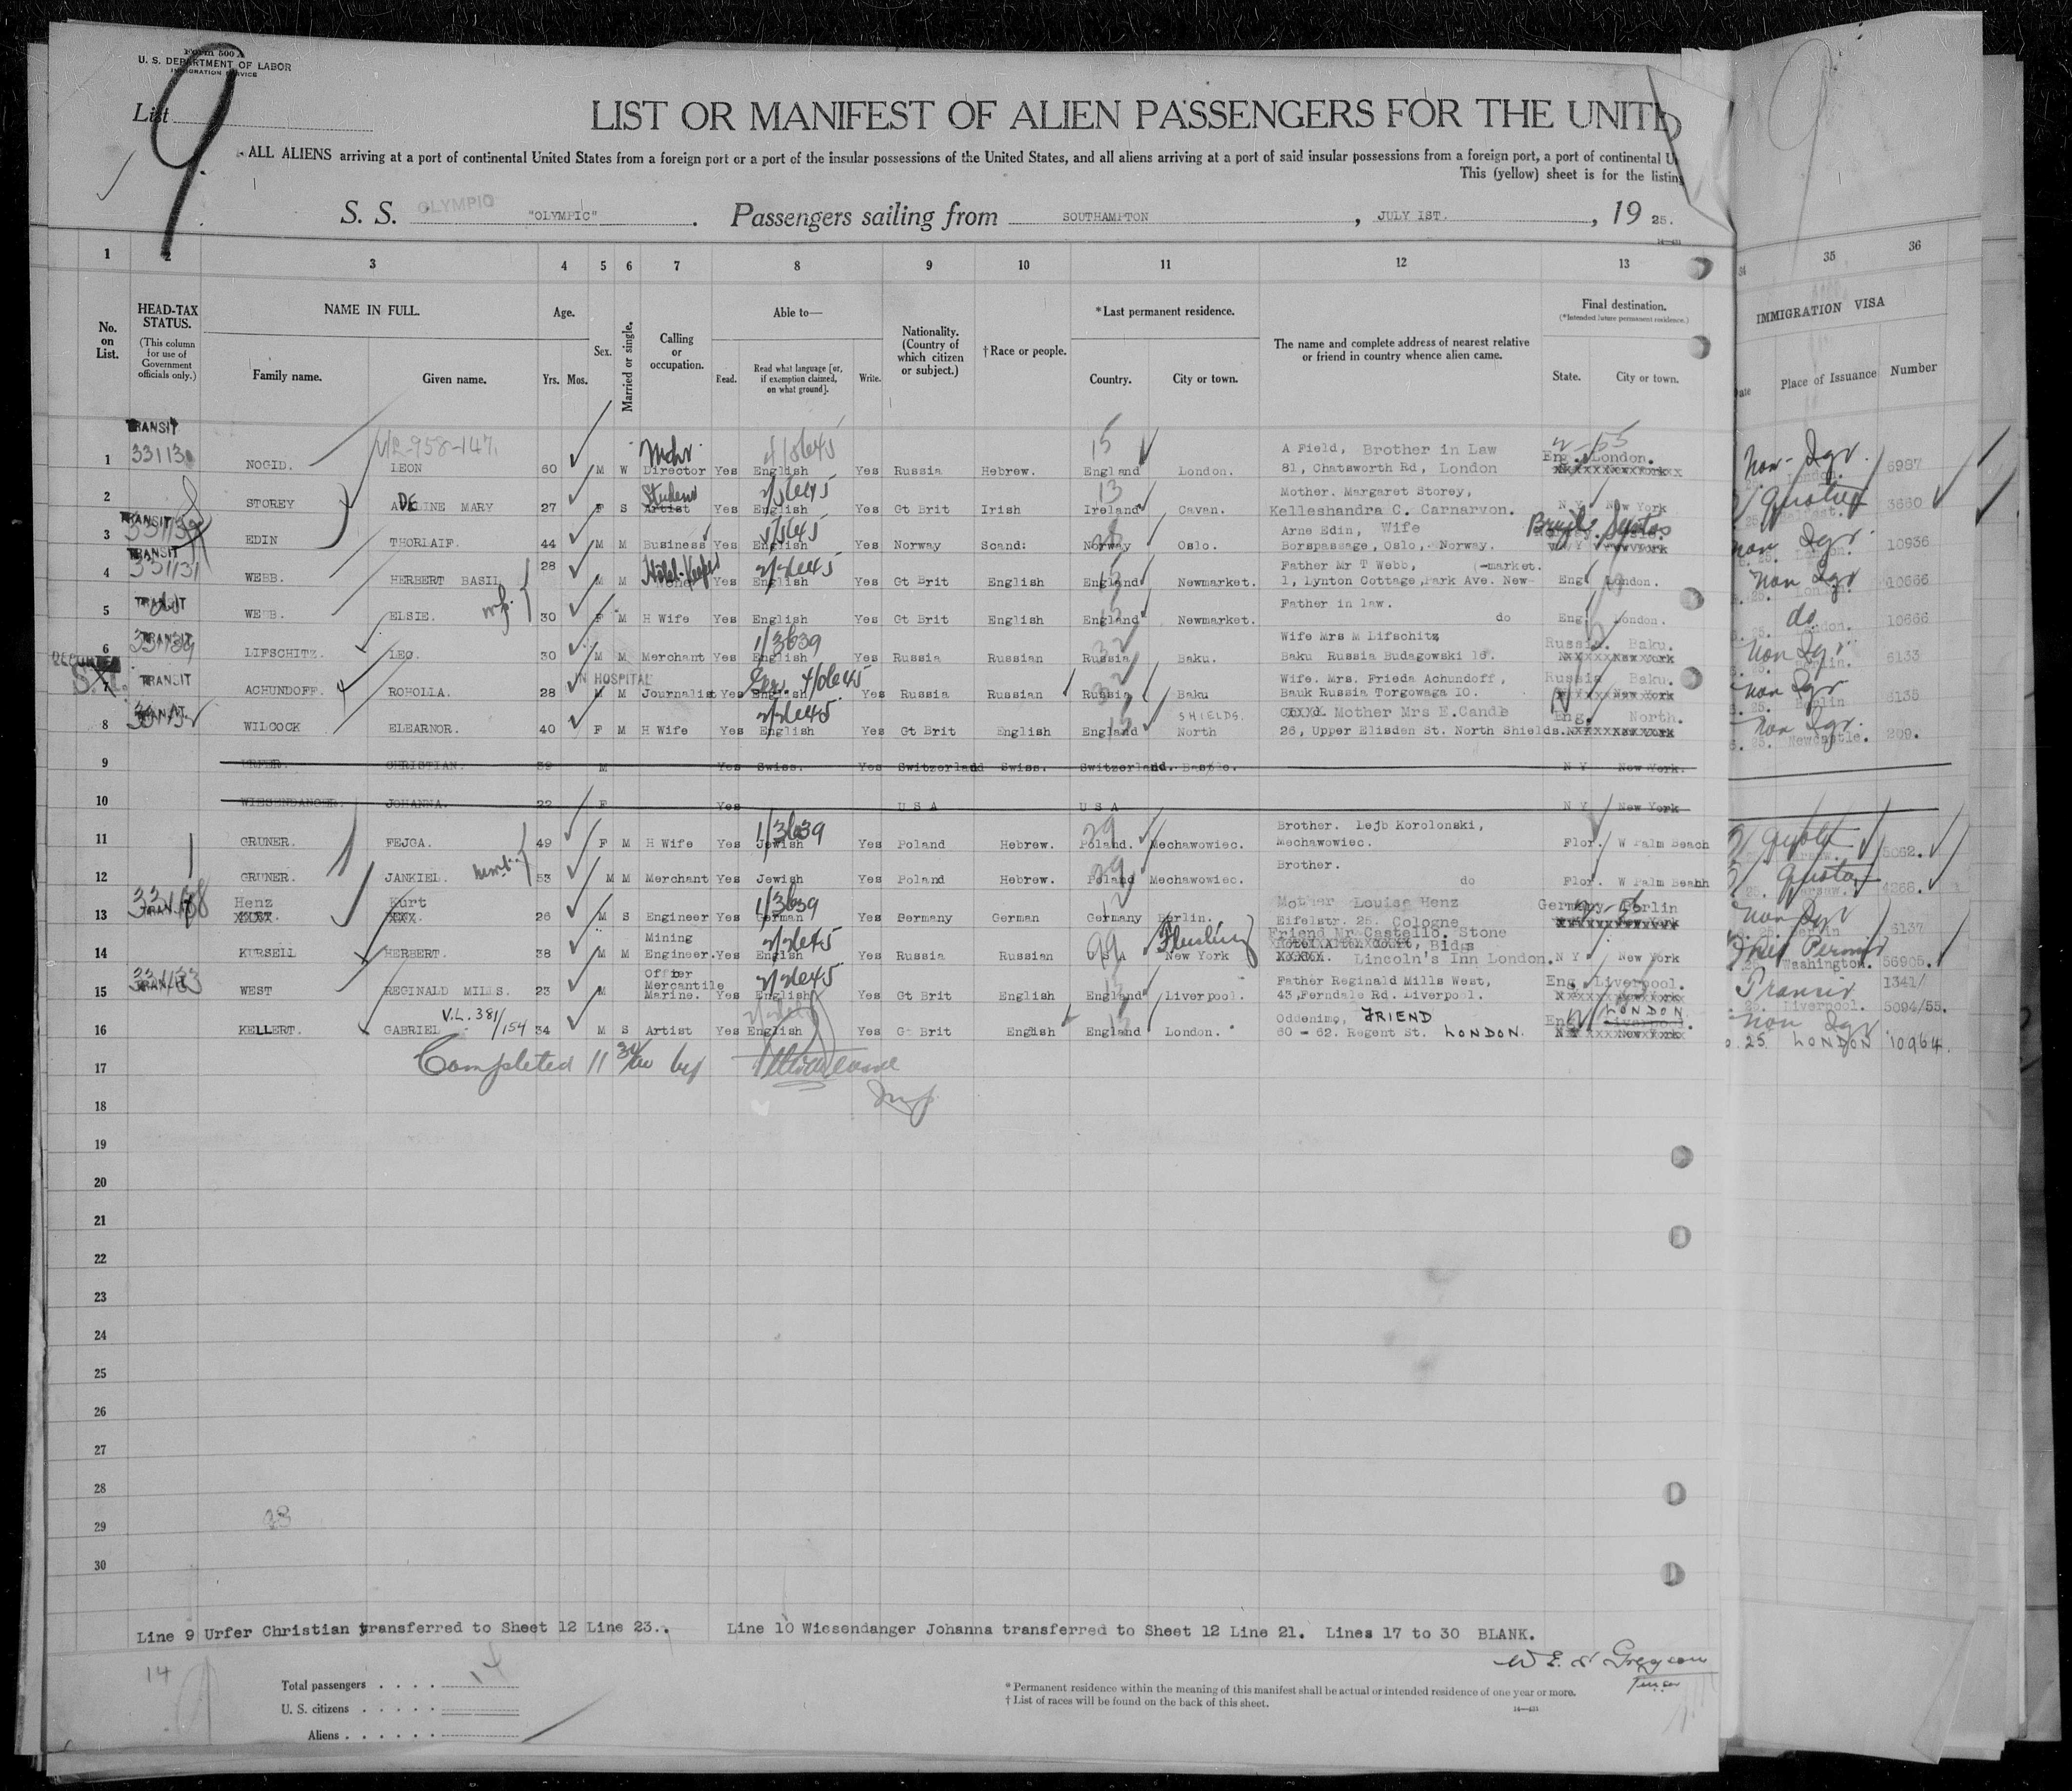 Form 500 A
U. S. DEPARTMENT OF LABOR
IMMIGRATION SERVICE
List
9
9
LIST OR MANIFEST OF ALIEN PASSENGERS FOR THE UNITED
ALL ALIENS arriving at a port of continental United States from a foreign port or a port of the insular possessions of the United States, and all aliens arriving at a port of said insular possessions from a foreign port, a port of continental U
This (yellow) sheet is for the listing
S. S. OLYMPIC "OLYMPIC". Passengers sailing from SOUTHAMPTON, JULY 1ST., 1925.
1 2 3 4 5 6 7 8 9 10 11 12 13 34 35 36
No. on List. HEAD-TAX STATUS. (This column for use of Government officials only.) NAME IN FULL. Family name. Given name. Age. Yrs. Mos. Sex. Married or single. Calling or occupation. Able to— Read. Read what language [or, if exemption claimed, on what ground]. Write. Nationality. (Country of which citizen or subject.) † Race or people. *Last permanent residence. Country. City or town. The name and complete address of nearest relative or friend in country whence alien came. Final destination. (*Intended future permanent residence.) State. City or town. IMMIGRATION VISA Date Place of Issuance Number
TRANSIT
1 NOGID. LEON 60 M W Director Yes English Yes Russia Hebrew. 15 England London. A Field, Brother in Law 81, Chatsworth Rd, London Eng. London. New York Non-Igr. London. 6987
2 STOREY ADELINE MARY 27 F S Student Artist Yes English Yes Gt Brit Irish 13 Ireland Cavan. Mother. Margaret Storey, Kelleshandra C. Carnarvon. N Y New York Quota 3660
TRANSIT
3 EDIN THORLAIF. 44 M M Business Yes English Yes Norway Scand: Norway Oslo. Arne Edin, Wife Borspassage, Oslo, Norway. New York Non Igr. 10936
TRANSIT 33113/
4 WEBB. HERBERT BASIL 28 M M Hotel-Keeper None Yes English Yes Gt Brit English England Newmarket. Father Mr T Webb, (-market. 1, Lynton Cottage, Park Ave. New- Eng London. Non Igr 10666
TRANSIT do
5 WEBB. ELSIE. 30 F M H Wife Yes English Yes Gt Brit English England Newmarket. Father in law. do Eng London. do 10666
TRANSIT
6 LIFSCHITZ. LEO. 30 M M Merchant Yes 1/3639 English Yes Russia Russian Russia Baku. Wife Mrs M Lifschitz Baku Russia Budagowski 16. Russia. Baku. New York Non Igr Berlin. 6133
TRANSIT
IN HOSPITAL
7 ACHUNDOFF. ROHOLLA. 28 M M Journalist Yes English Yes Russia Russian Russia Baku Wife. Mrs. Frieda Achundoff, Bauk Russia Torgowaga IO. Russia Baku. New York Non Igr Berlin 6135
TRANSIT
8 WILCOCK ELEARNOR. 40 F M H Wife Yes English Yes Gt Brit English England SHIELDS. North Mother Mrs E.Candle 26, Upper Elisden St. North Shields. Eng. North. New York Non Igr. Newcastle. 209.
9 URFER. CHRISTIAN. 39 M Yes Swiss. Yes Switzerland Swiss. Switzerland. Basle. N Y New York.
10 WIESENDANGER. JOHANNA. 22 F Yes U S A U S A N Y New York
11 GRUNER. FEJGA. 49 F M H Wife Yes 1/3639 Jewish Yes Poland Hebrew. 29 Poland. Mechawowiec. Brother. Lejb Korolonski, Mechawowiec. Flor. W Palm Beach Quota Warsaw. 5062.
12 GRUNER. JANKIEL. 53 M M Merchant Yes Jewish Yes Poland Hebrew. 29 Poland Mechawowiec. Brother. do Flor. W Palm Beahh Quota Warsaw. 4266.
TRANSIT
13 Henz Kurt 26 M S Engineer Yes 1/3639 German Yes Germany German Germany Berlin. Mother Louise Henz Eifelstr. 25. Cologne Germany Berlin New York Non Igr Berlin 6137
14 KURSELL HERBERT. 38 M M Mining Engineer. Yes English Yes Russia Russian 99 U S A Flushing New York Friend Mr Castello. Stone Bldgs Lincoln's Inn London. N Y New York Washington. 56905.
TRANSIT 33133
15 WEST REGINALD MILLS. 23 M Officer Mercantile Marine. Yes English Yes Gt Brit English England Liverpool. Father Reginald Mills West, 43, Ferndale Rd. Liverpool. Eng Liverpool. New York Transit Liverpool. 1341/ 5094/55.
16 KELLERT. GABRIEL V.L. 381/154 34 M S Artist Yes English Yes Gt Brit English England London. Oddenimo, FRIEND 60 - 62. Regent St. LONDON. Eng LONDON Liverpool. New York Non Igr. 25 LONDON 10964.
17 Completed 11 30/ by
18
19
20
21
22
23
24
25
26
27
28
29
30
Line 9 Urfer Christian transferred to Sheet 12 Line 23. Line 10 Wiesendanger Johanna transferred to Sheet 12 Line 21. Lines 17 to 30 BLANK.
14
Total passengers . . . . 14
U. S. citizens . . . . .
Aliens . . . . . .
* Permanent residence within the meaning of this manifest shall be actual or intended residence of one year or more.
† List of races will be found on the back of this sheet.
14—431